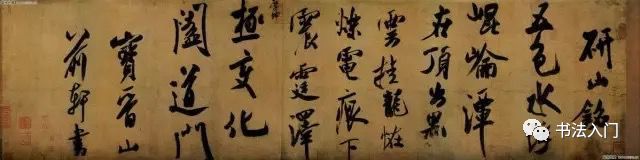 研山銘
五色水浮
崐崘潭
在頂出黑
雲挂龍怪
爍電痕下
震霆澤
極變化
闔道門
寶晉山
前軒書
书法入门